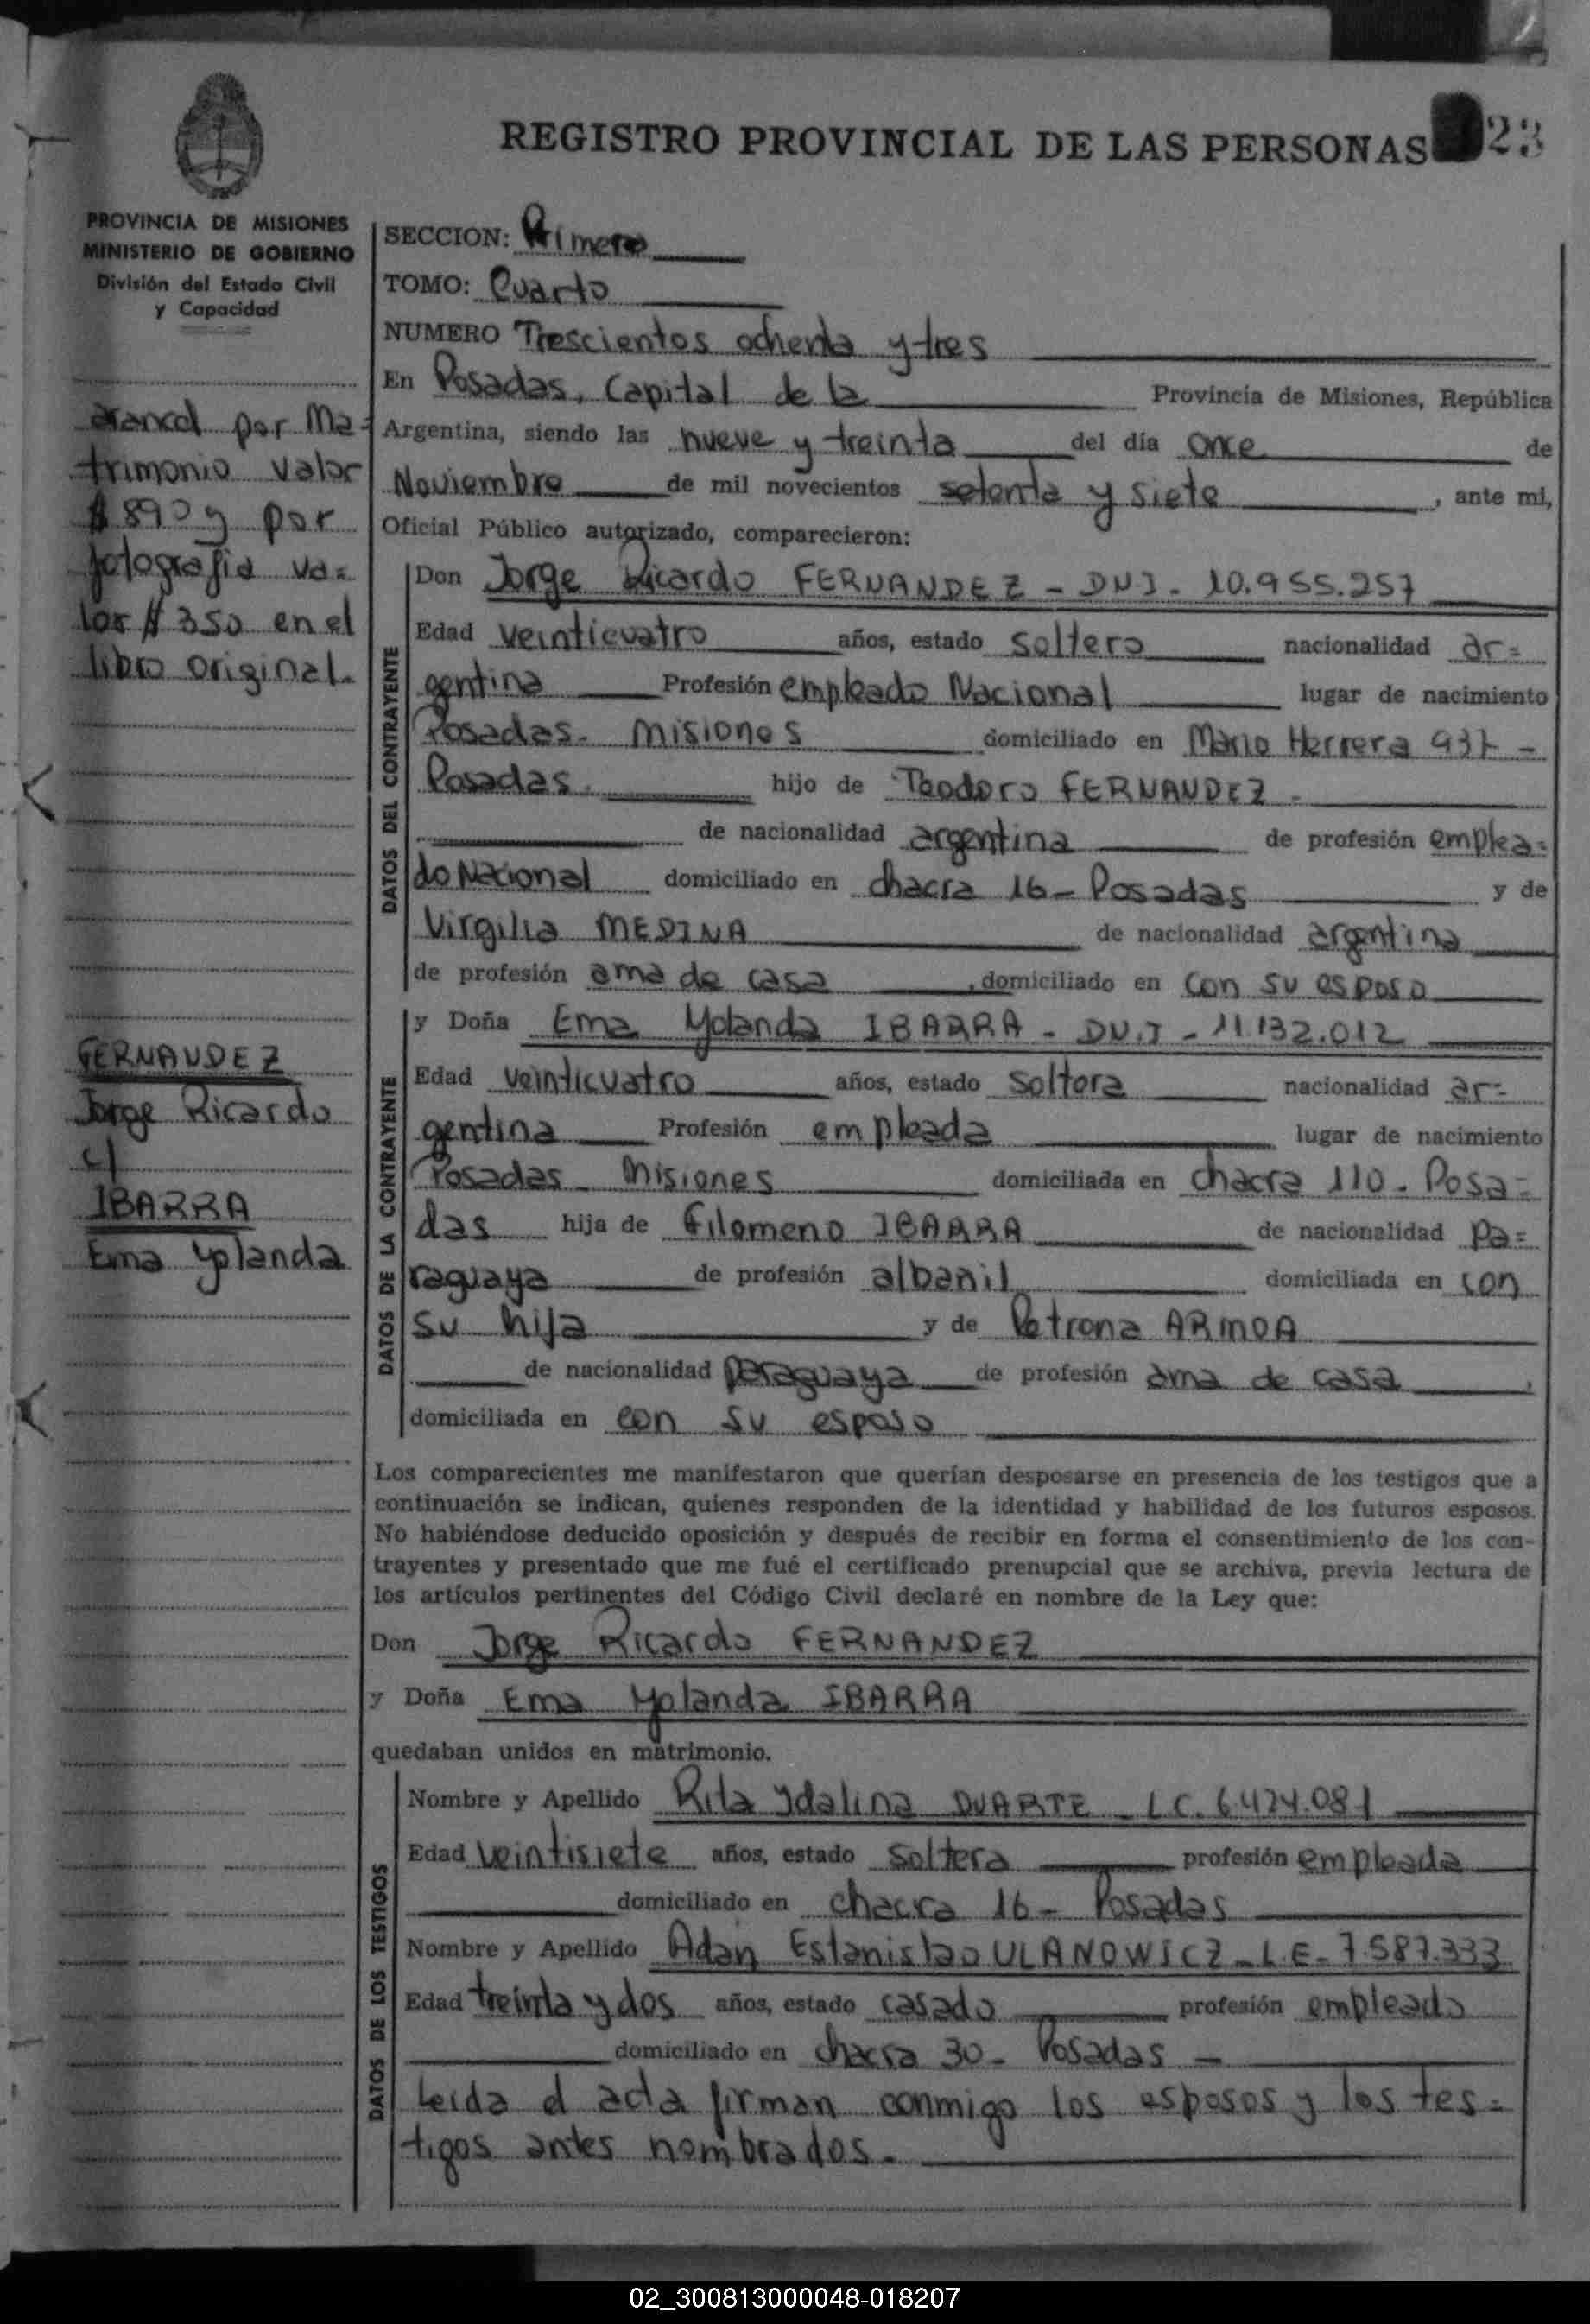 REGISTRO PROVINCIAL DE LAS PERSONAS 23
PROVINCIA DE MISIONES
MINISTERIO DE GOBIERNO
División del Estado Civil
y Capacidad
arancel por Ma=
trimonio valor
$ 890 y por
fotografia va=
lor $ 350 en el
libro original.
FERNANDEZ
Jorge Ricardo
c/
IBARRA
Ema Yolanda
SECCION: Primera
TOMO: Cuarto
NUMERO Trescientos ochenta y tres
En Posadas, Capital de la Provincia de Misiones, República
Argentina, siendo las nueve y treinta del día once de
Noviembre de mil novecientos setenta y siete, ante mi,
Oficial Público autorizado, comparecieron:
DATOS DEL CONTRAYENTE
Don Jorge Ricardo FERNANDEZ - DNI - 10.955.257
Edad veinticuatro años, estado soltero nacionalidad ar=
gentina Profesión empleado Nacional lugar de nacimiento
Posadas - Misiones domiciliado en Mario Herrera 937 -
Posadas. hijo de Teodoro FERNANDEZ -
de nacionalidad argentina de profesión emplea=
do Nacional domiciliado en chacra 16 - Posadas y de
Virgilia MEDINA de nacionalidad argentina
de profesión ama de casa, domiciliado en con su esposo
DATOS DE LA CONTRAYENTE
y Doña Ema Yolanda IBARRA - DN.I - 11.132.012
Edad veinticuatro años, estado soltera nacionalidad ar=
gentina Profesión empleada lugar de nacimiento
Posadas - Misiones domiciliada en chacra 110 - Posa=
das hija de Filomeno IBARRA de nacionalidad pa=
raguaya de profesión albanil domiciliada en con
su hija y de Petrona ARMOA
de nacionalidad paraguaya de profesión ama de casa,
domiciliada en con su esposo
Los comparecientes me manifestaron que querían desposarse en presencia de los testigos que a
continuación se indican, quienes responden de la identidad y habilidad de los futuros esposos.
No habiéndose deducido oposición y después de recibir en forma el consentimiento de los con-
trayentes y presentado que me fué el certificado prenupcial que se archiva, previa lectura de
los artículos pertinentes del Código Civil declaré en nombre de la Ley que:
Don Jorge Ricardo FERNANDEZ
y Doña Ema Yolanda IBARRA
quedaban unidos en matrimonio.
DATOS DE LOS TESTIGOS
Nombre y Apellido Rita Ydalina DUARTE - L.C. 6.424.081
Edad veintisiete años, estado soltera profesión empleada
domiciliado en chacra 16 - Posadas
Nombre y Apellido Adan Estanislao ULANOWICZ - L.E - 7.587.333
Edad treinta y dos años, estado casado profesión empleado
domiciliado en chacra 30 - Posadas -
Leida el acta firman conmigo los esposos y los tes=
tigos antes nombrados.
02_300813000048-018207